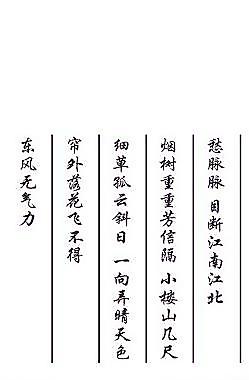 愁脉脉 目断江南江北
烟树重重芳信隔 小楼山几尺
细草孤云斜日 一向弄晴天色
帘外落花飞不得
东风无气力